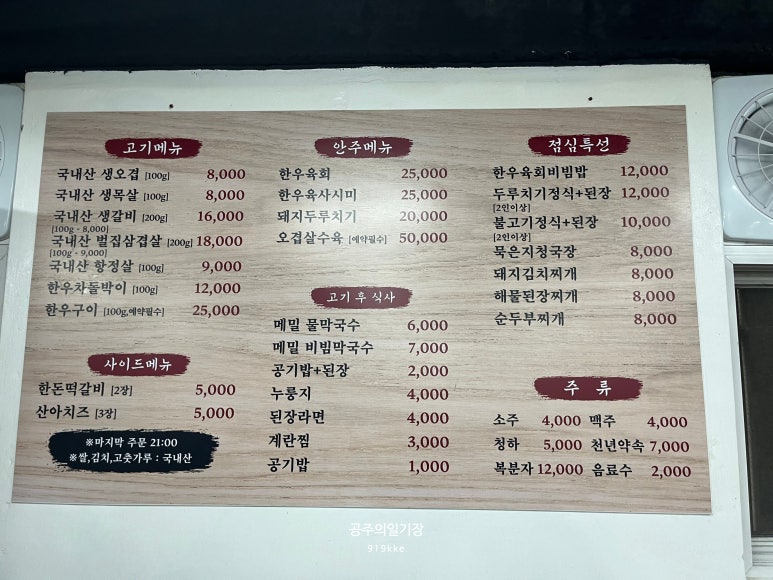 고기메뉴
국내산 생오겹 [100g] 8,000
국내산 생목살 [100g] 8,000
국내산 생갈비 [200g] 16,000
[100g - 8,000]
국내산 벌집삼겹살 [200g] 18,000
[100g - 9,000]
국내산 항정살 [100g] 9,000
한우차돌박이 [100g] 12,000
한우구이 [100g,예약필수] 25,000
사이드메뉴
한돈떡갈비 [2장] 5,000
산아치즈 [3장] 5,000
※마지막 주문 21:00
※쌀,김치,고춧가루 : 국내산
안주메뉴
한우육회 25,000
한우육사시미 25,000
돼지두루치기 20,000
오겹살수육 [예약필수] 50,000
고기 후 식사
메밀 물막국수 6,000
메밀 비빔막국수 7,000
공기밥+된장 2,000
누룽지 4,000
된장라면 4,000
계란찜 3,000
공기밥 1,000
점심특선
한우육회비빔밥 12,000
두루치기정식+된장 12,000
[2인이상]
불고기정식+된장 10,000
[2인이상]
묵은지청국장 8,000
돼지김치찌개 8,000
해물된장찌개 8,000
순두부찌개 8,000
주 류
소주 4,000 맥주 4,000
청하 5,000 천년약속 7,000
복분자 12,000 음료수 2,000
공주의일기장
919kke